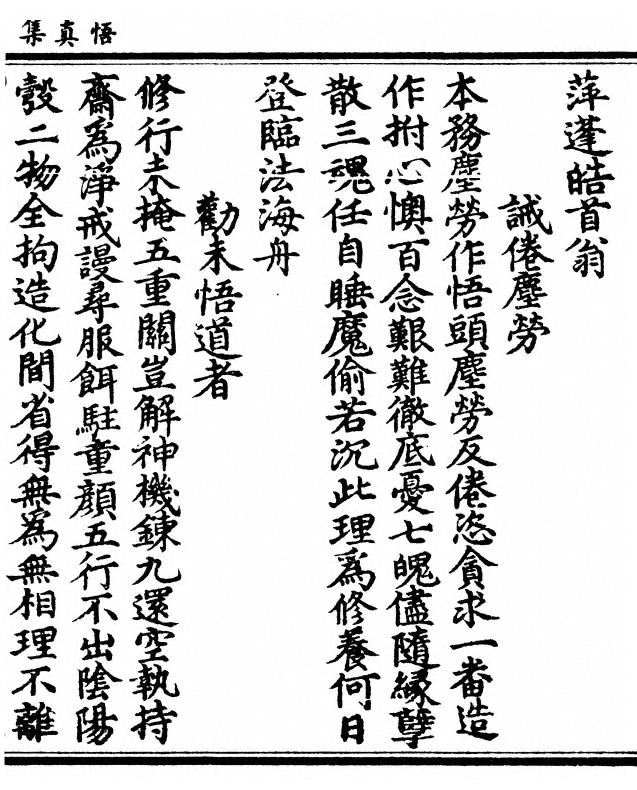 悟真集
萍蓬皓首翁
誡倦塵勞
本務塵勞作悟頭塵勞反倦恣貪求一番造
作拊心懊百念艱難徹底憂七魄儘隨緣孽
散三魂任自睡魔偷若沉此理爲修養何日
登臨法海舟
勸未悟道者
修行未掩五重關豈解神機鍊九還空執持
齋爲淨戒謾尋服餌駐童顏五行不出陰陽
彀二物全拘造化間省得無爲無相理不離